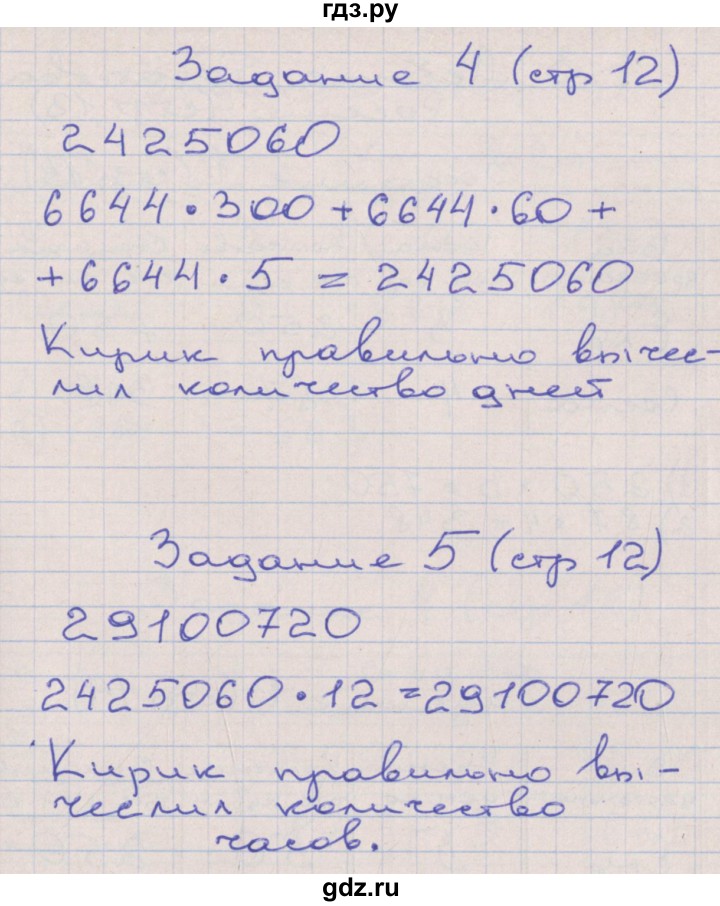 гдз.ру
Задание 4 (стр 12)
2425060
6644 • 300 + 6644 • 60 +
+ 6644 • 5 = 2425060
Кирик правильно вычес-
лил количество дней
Задание 5 (стр 12)
29100720
2425060 • 12 = 29100720
Кирик правильно вы-
числил количество
часов.
gdz.ru